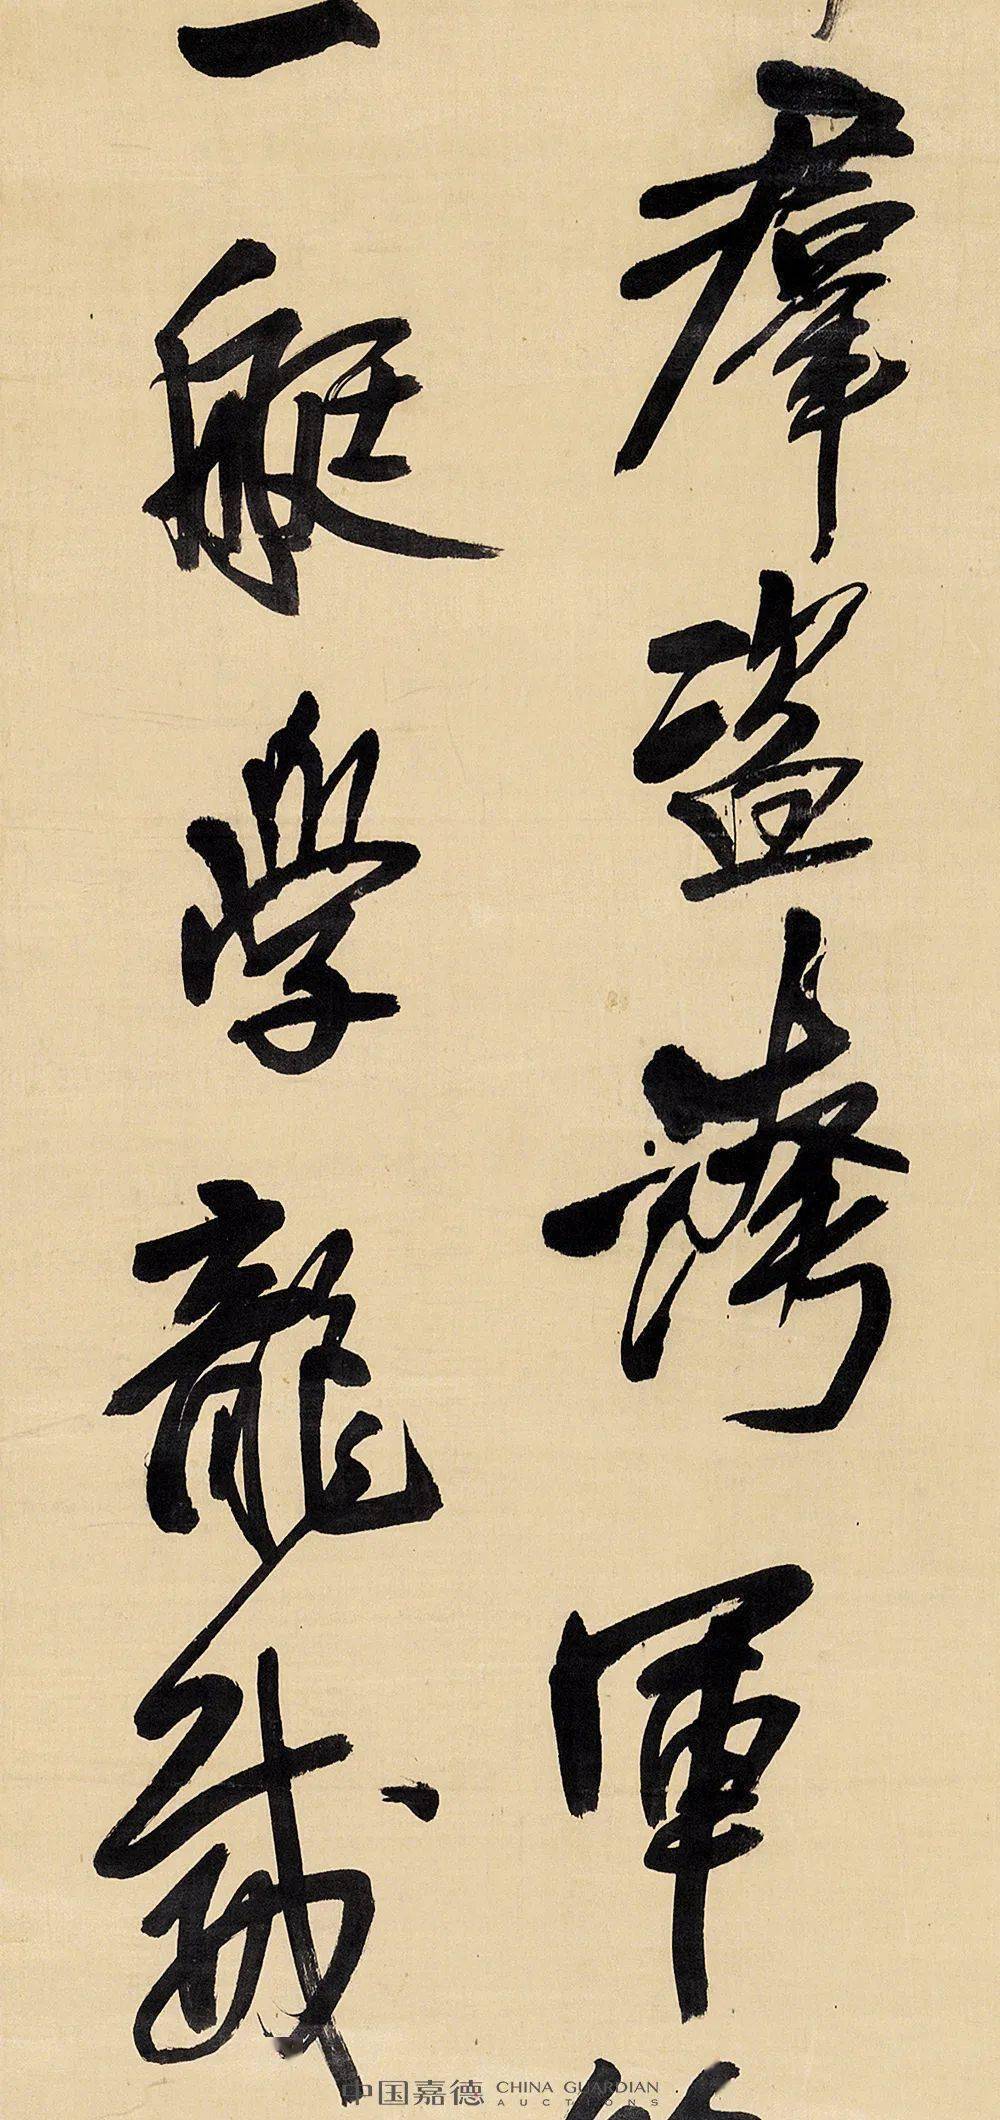 羣盜滿軍
一艇學龍藏
中国嘉德 CHINA GUARDIAN
AUCTIONS